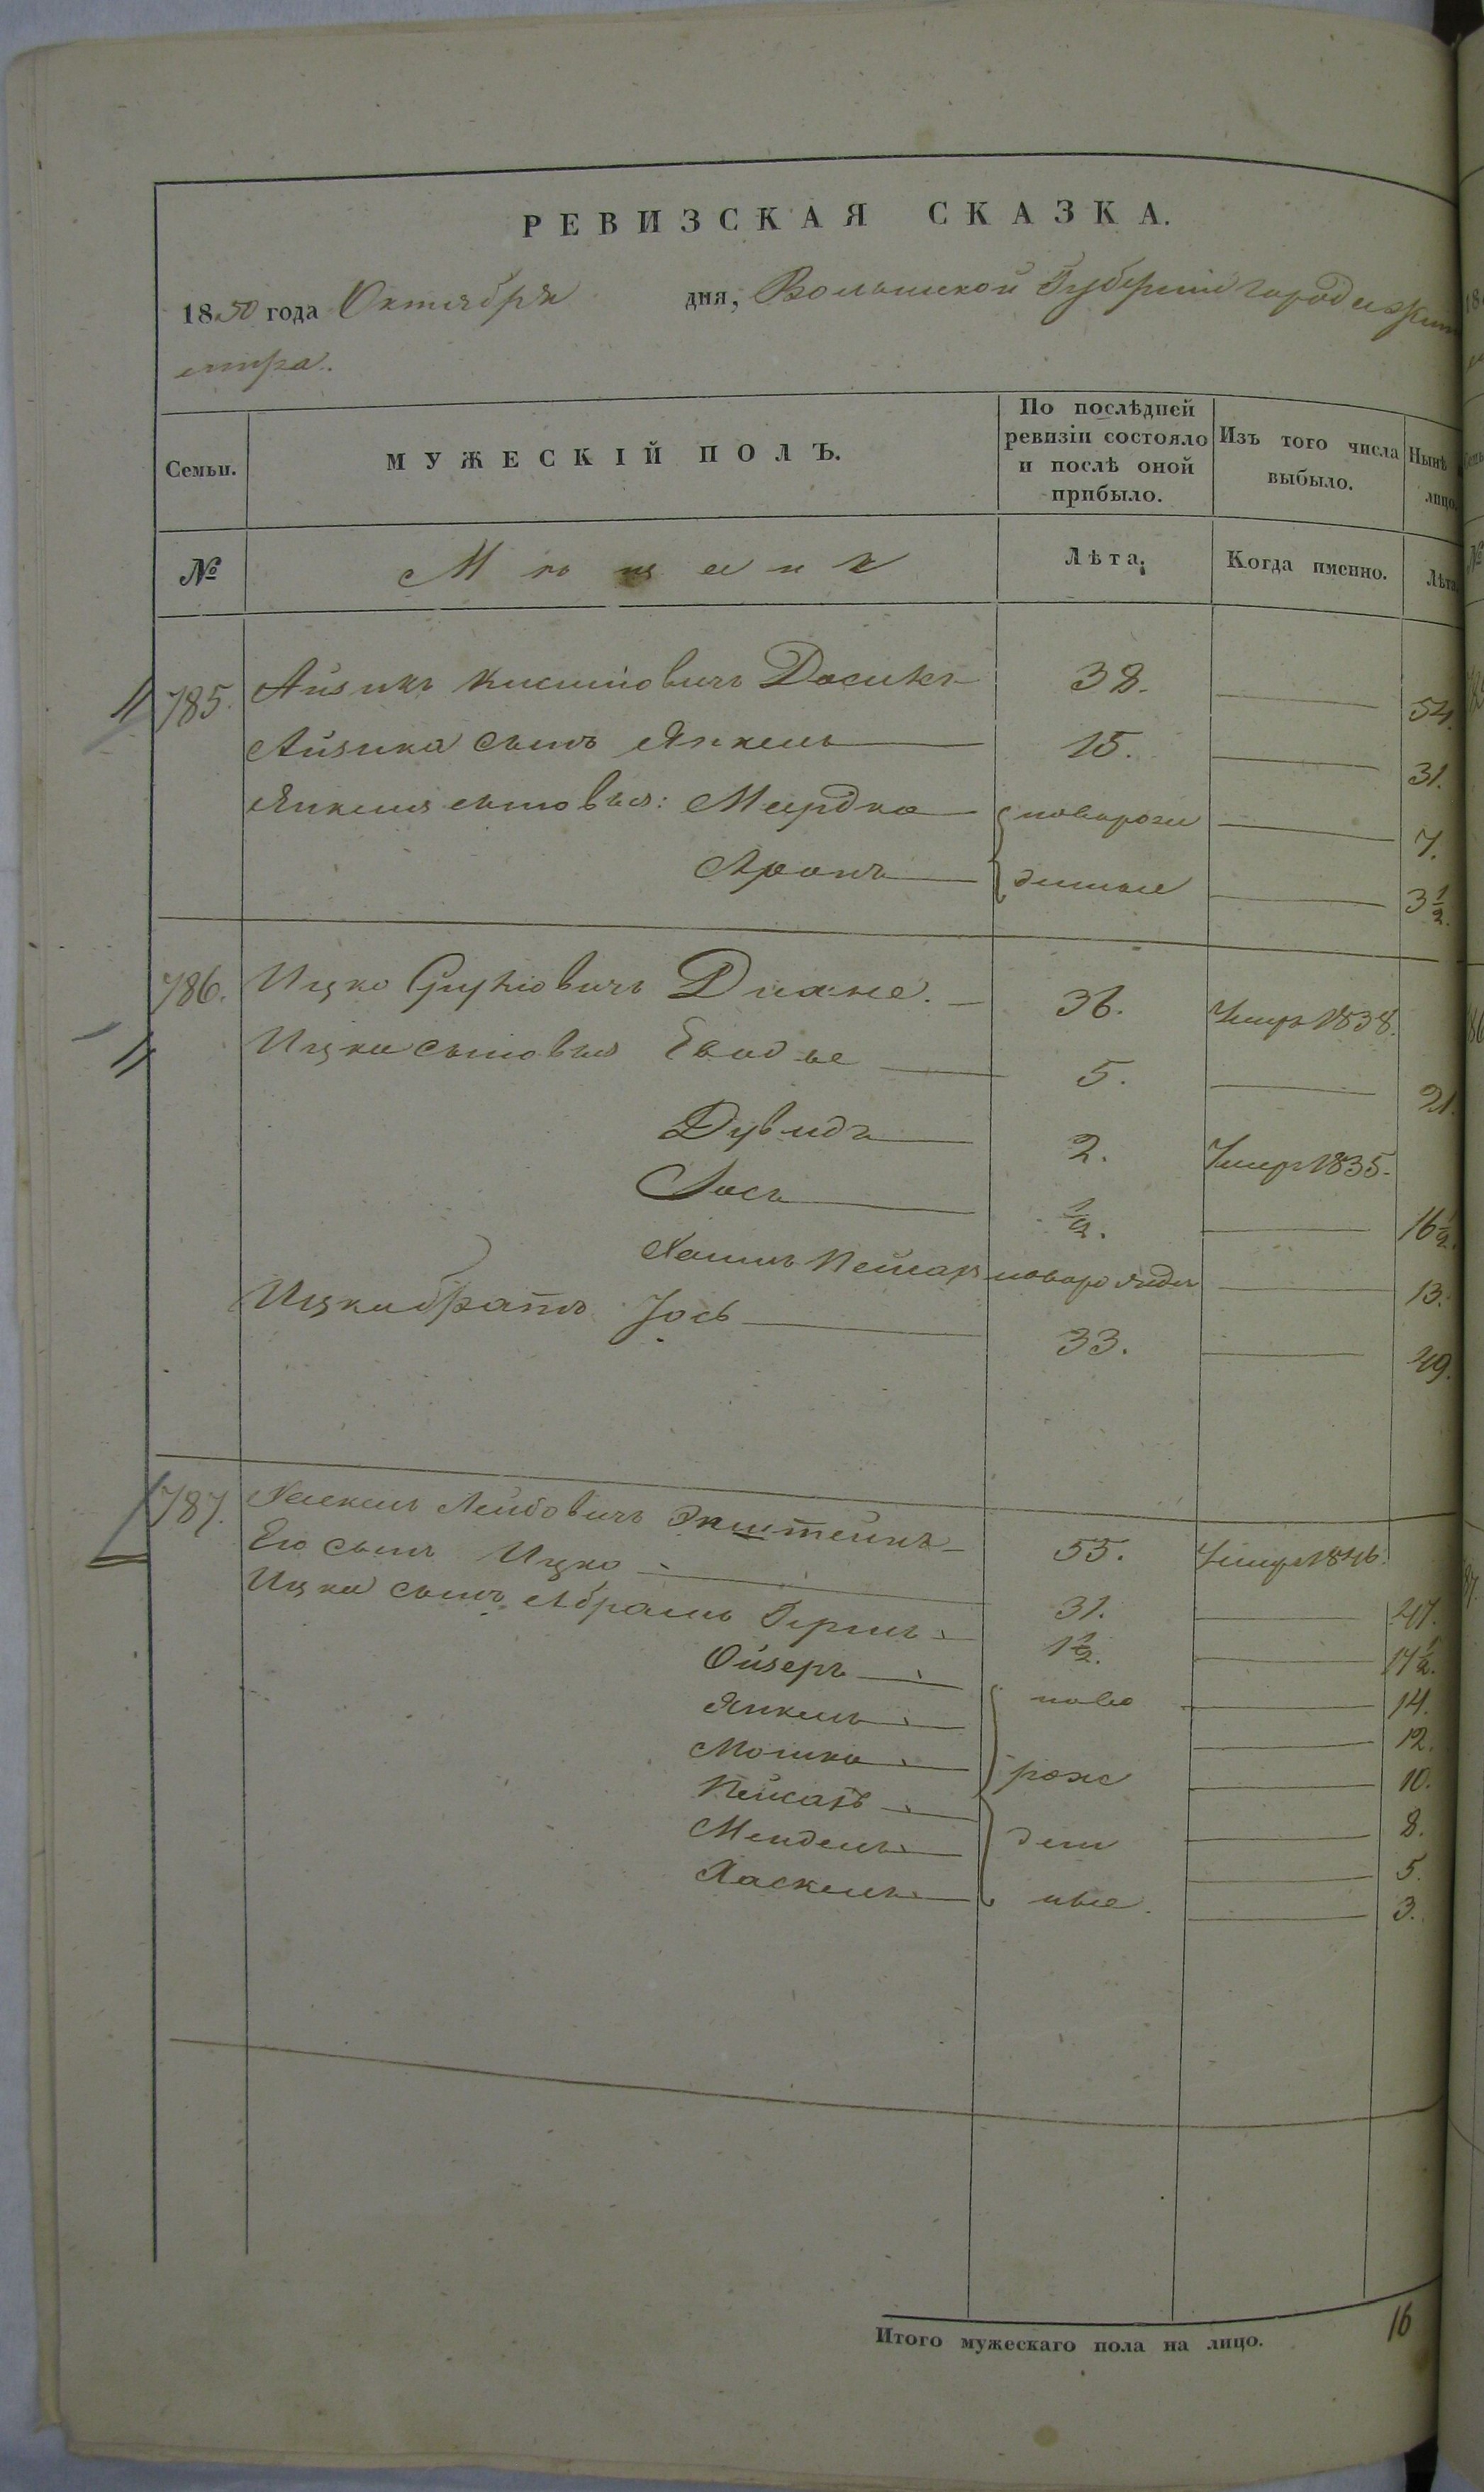 РЕВИЗСКАЯ СКАЗКА.
1850 года Октября дня, Волынской Губерніи города Жит
омира.
Семьи. МУЖЕСКІЙ ПОЛЪ. По послѣдней ревизіи состояло и послѣ оной прибыло. Изъ того числа выбыло. Нынѣ лицо.
№ Мѣщане Лѣта. Когда именно. Лѣта
785. Айзикъ Досикъ 38. 54.
Айзика сынъ Янкель 15. 31.
Янкеля сыновья: Мордко новорож 7.
Аронъ денные 3 1/2.
786. Ицко 36. Умеръ 1838.
Ицка сыновья 5. 21.
Дувидъ 2. Умеръ 1835.
1/2. 16 1/2.
Хаимъ Пейсахъ новорожден 13.
Ицка братъ Іось 33. 49.
787. Хаскель Лейбовичъ Экштейнъ 55. Умеръ 1846.
Его сынъ Ицко 31. 47.
Ицка сынъ Абрамъ Гершъ 1 1/2. 17 1/2.
Ойзеръ ново 14.
Янкель 12.
Мошко рож 10.
Пейсахъ 8.
Мендель ден 5.
Хаскель ные. 3.
Итого мужескаго пола на лицо. 16